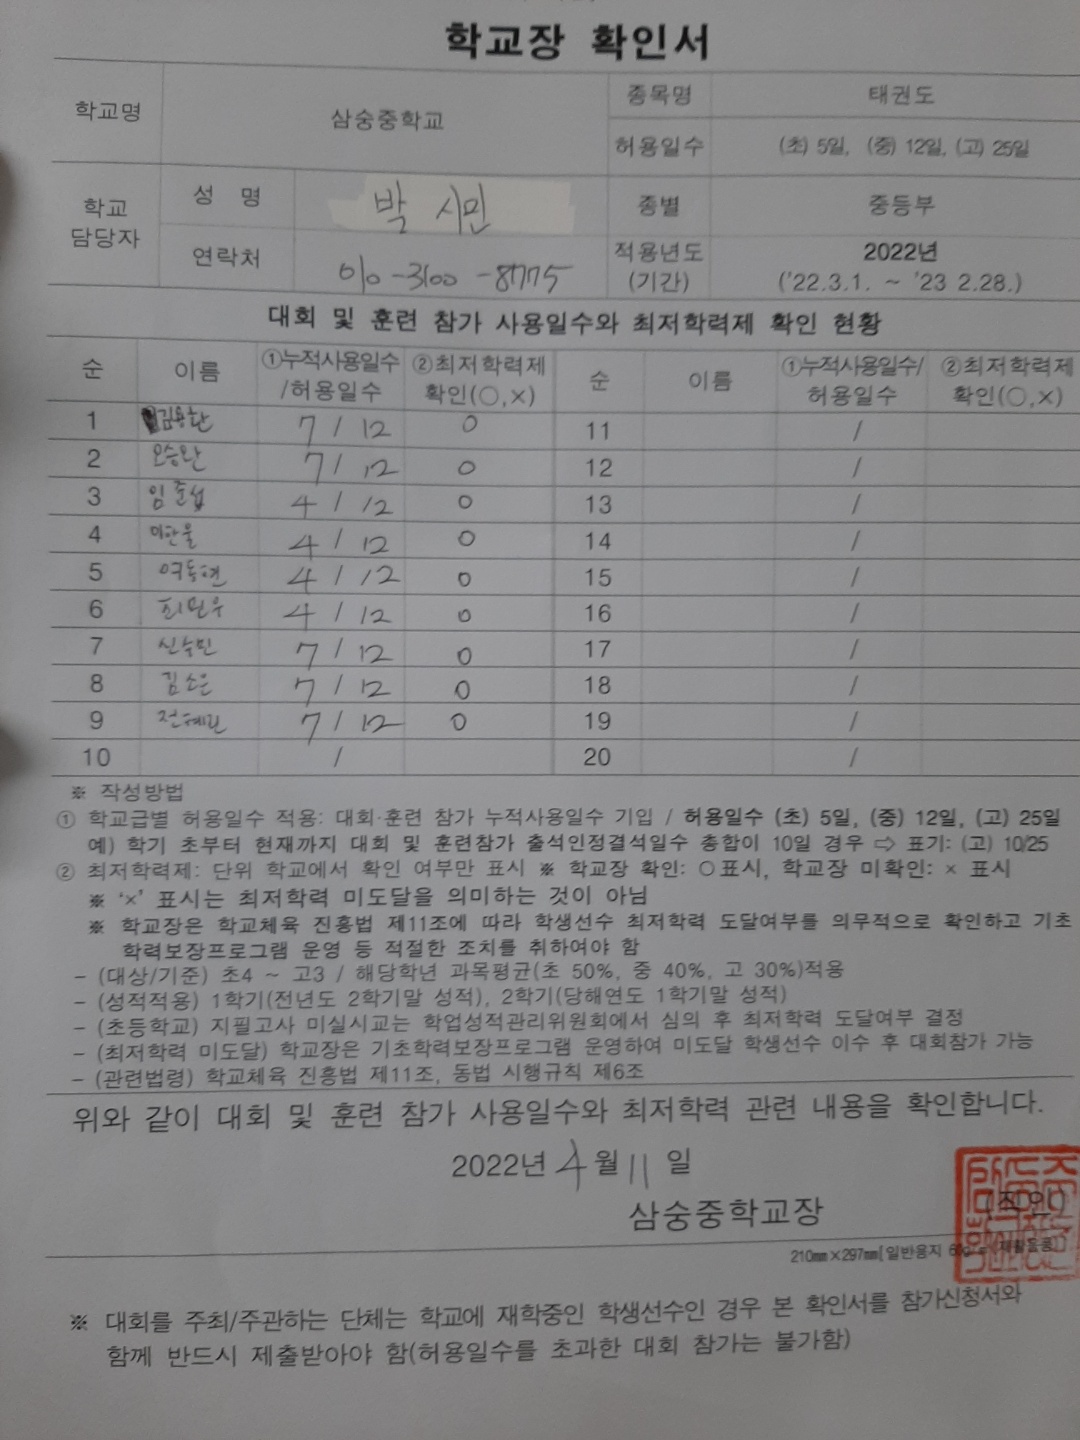 학교장 확인서
학교명 삼숭중학교 종목명 태권도
허용일수 (초) 5일, (중) 12일, (고) 25일
학교 담당자 성 명 박 시민 종별 중등부
연락처 010-3100-8775 적용년도 (기간) 2022년 ('22.3.1. ~ '23 2.28.)
대회 및 훈련 참가 사용일수와 최저학력제 확인 현황
순 이름 ①누적사용일수/허용일수 ②최저학력제 확인(○,×) 순 이름 ①누적사용일수/허용일수 ②최저학력제 확인(○,×)
1 김용환 7 / 12 O 11 /
2 오승완 7 / 12 O 12 /
3 임준섭 4 / 12 O 13 /
4 이한울 4 / 12 O 14 /
5 여동현 4 / 12 O 15 /
6 최민우 4 / 12 O 16 /
7 신숙민 7 / 12 O 17 /
8 김소은 7 / 12 O 18 /
9 전혜린 7 / 12 O 19 /
10 / 20 /
※ 작성방법
① 학교급별 허용일수 적용: 대회·훈련 참가 누적사용일수 기입 / 허용일수 (초) 5일, (중) 12일, (고) 25일
예) 학기 초부터 현재까지 대회 및 훈련참가 출석인정결석일수 총합이 10일 경우 ⇨ 표기: (고) 10/25
② 최저학력제: 단위 학교에서 확인 여부만 표시 ※ 학교장 확인: ○표시, 학교장 미확인: × 표시
※ '×' 표시는 최저학력 미도달을 의미하는 것이 아님
※ 학교장은 학교체육 진흥법 제11조에 따라 학생선수 최저학력 도달여부를 의무적으로 확인하고 기초
학력보장프로그램 운영 등 적절한 조치를 취하여야 함
- (대상/기준) 초4 ~ 고3 / 해당학년 과목평균(초 50%, 중 40%, 고 30%)적용
- (성적적용) 1학기(전년도 2학기말 성적), 2학기(당해연도 1학기말 성적)
- (초등학교) 지필고사 미실시교는 학업성적관리위원회에서 심의 후 최저학력 도달여부 결정
- (최저학력 미도달) 학교장은 기초학력보장프로그램 운영하여 미도달 학생선수 이수 후 대회참가 가능
- (관련법령) 학교체육 진흥법 제11조, 동법 시행규칙 제6조
위와 같이 대회 및 훈련 참가 사용일수와 최저학력 관련 내용을 확인합니다.
2022년 4월 11일
삼숭중학교장 (직인)
210㎜×297㎜[일반용지 60g/㎡(재활용품)]
※ 대회를 주최/주관하는 단체는 학교에 재학중인 학생선수인 경우 본 확인서를 참가신청서와
함께 반드시 제출받아야 함(허용일수를 초과한 대회 참가는 불가함)